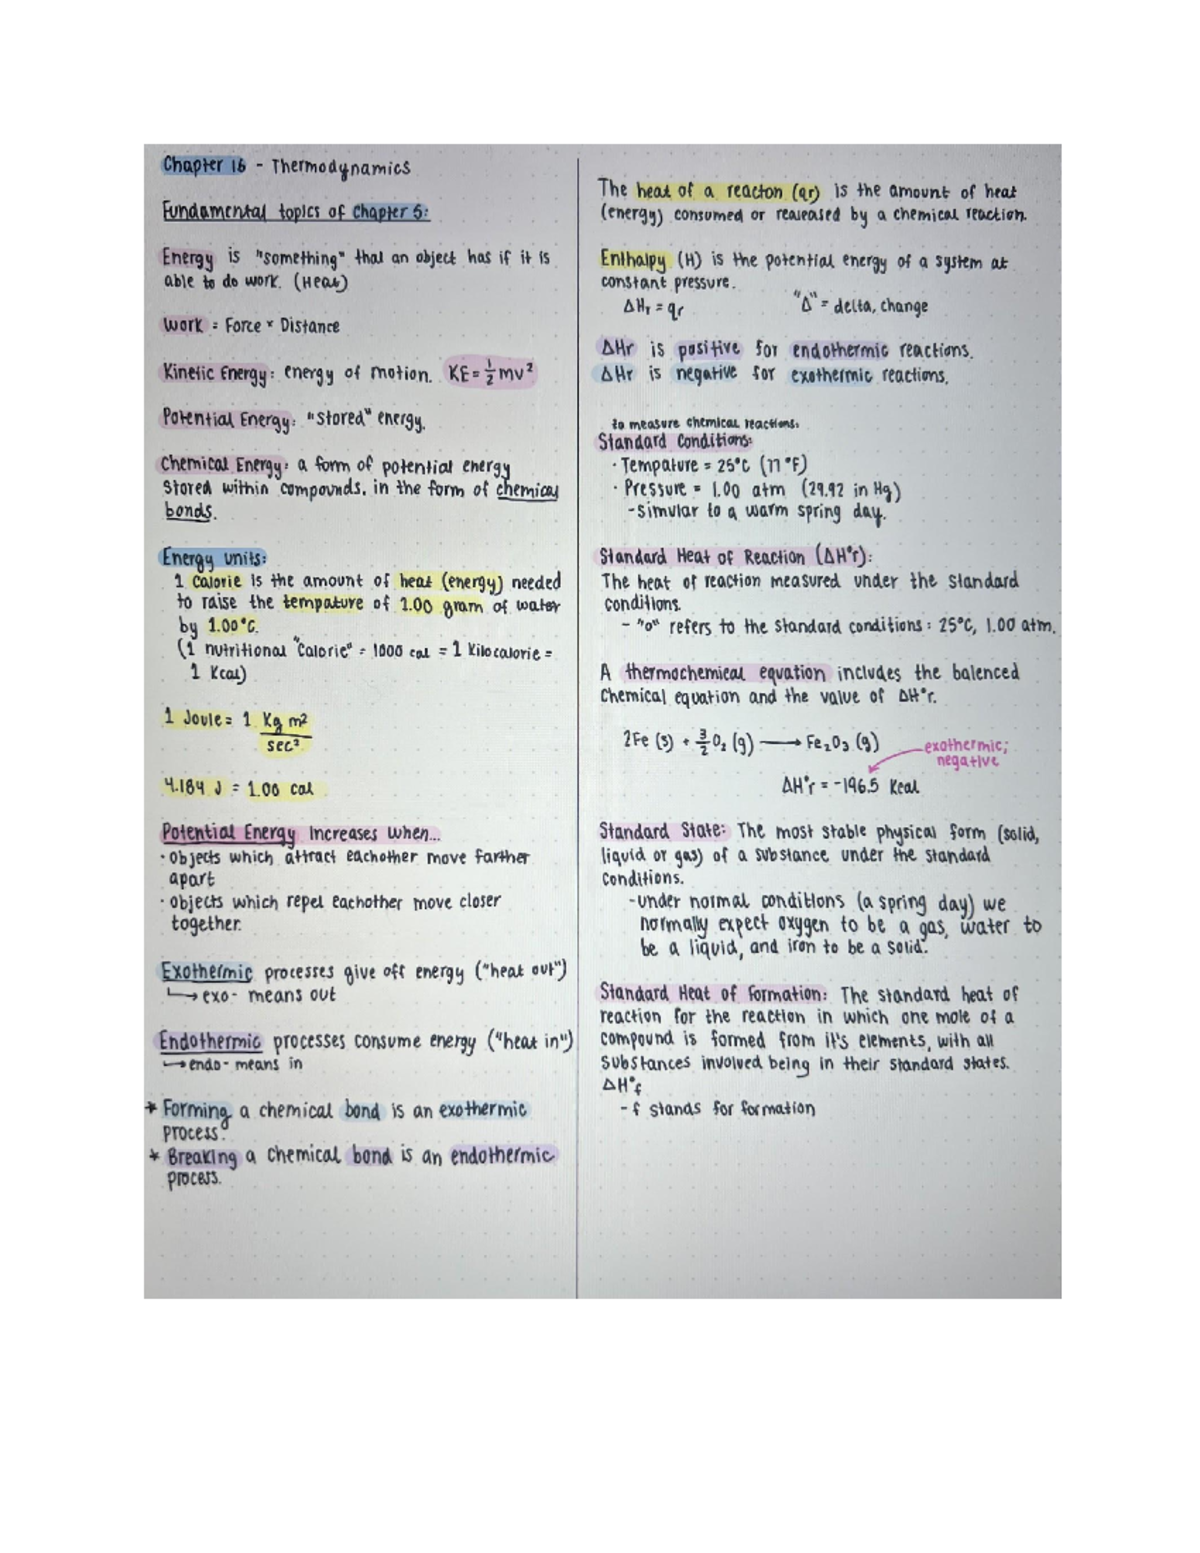 Chapter 16 - Thermodynamics
Fundamental topics of Chapter 5:
Energy is "something" that an object has if it is
able to do work. (Heat)
Work = Force × Distance
Kinetic Energy: energy of motion. KE = 1/2 mv²
Potential Energy: "stored" energy.
Chemical Energy: a form of potential energy
stored within compounds. in the form of chemical
bonds.
Energy units:
1 Calorie is the amount of heat (energy) needed
to raise the tempature of 1.00 gram of water
by 1.00°C.
(1 nutritional "Calorie" = 1000 cal = 1 Kilocalorie =
1 Kcal)
1 Joule = 1 Kg m²
sec²
4.184 J = 1.00 cal
Potential Energy Increases when...
· objects which attract eachother move farther
apart
· objects which repel eachother move closer
together.
Exothermic processes give off energy ("heat out")
↳ exo- means out
Endothermic processes consume energy ("heat in")
↳ endo- means in
* Forming a chemical bond is an exothermic
process.
* Breaking a chemical bond is an endothermic
process.
The heat of a reacton (qr) is the amount of heat
(energy) consumed or realeased by a chemical reaction.
Enthalpy (H) is the potential energy of a system at
constant pressure.
ΔHr = qr "Δ" = delta, change
ΔHr is positive for endothermic reactions.
ΔHr is negative for exothermic reactions.
to measure chemical reactions.
Standard Conditions:
· Tempature = 25°C (77°F)
· Pressure = 1.00 atm (29.92 in Hg)
-simular to a warm spring day.
Standard Heat of Reaction (ΔH°r):
The heat of reaction measured under the standard
conditions.
- "o" refers to the standard conditions: 25°C, 1.00 atm.
A thermochemical equation includes the balenced
chemical equation and the value of ΔH°r.
2Fe (s) + 3/2 O₂ (g) → Fe₂O₃ (g)
exothermic;
negative
ΔH°r = -196.5 Kcal
Standard State: The most stable physical form (solid,
liquid or gas) of a substance under the standard
conditions.
-under normal conditions (a spring day) we
normally expect oxygen to be a gas, water to
be a liquid, and iron to be a solid.
Standard Heat of Formation: The standard heat of
reaction for the reaction in which one mole of a
compound is formed from it's elements, with all
substances involved being in their standard states.
ΔH°f
- f stands for formation